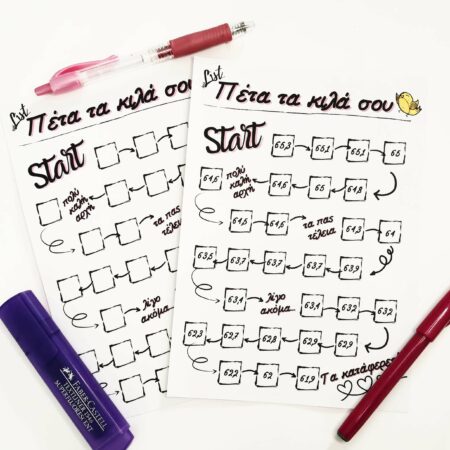 List
Πέτα τα κιλά σου
Start
πολύ
καλή
αρχή
τα πας
τέλεια
λίγο
ακόμα..
List
Πέτα τα κιλά σου
Start 65,3 65,1 65,1 65
64,5 πολύ καλή αρχή 64,6 65 64,8
64,5 64,6 τα πας τέλεια 64,3 64
63,5 63,7 63,7 63,7 63,9
63,4 λίγο ακόμα.. 63,4 63,2 63,2
62,3 62,7 62,8 62,9 62,9
62,2 62 61,9 Τα κατάφερες
FABER-CASTELL
TEXTLINER